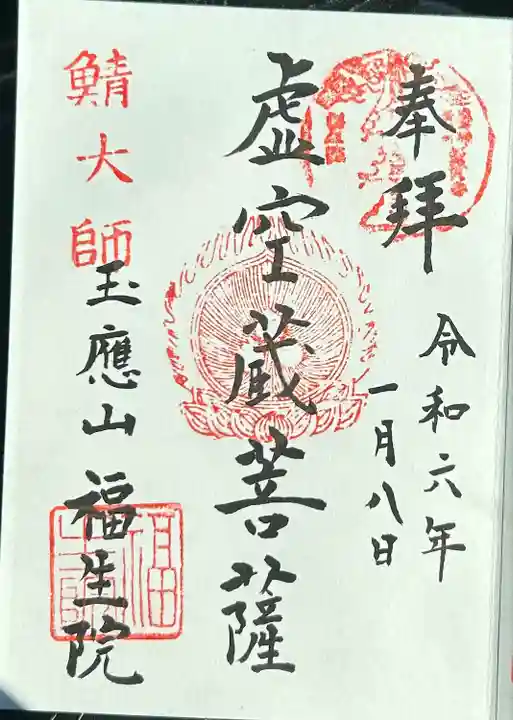 奉拝
令和六年
一月八日
虚空蔵菩薩
鯖大師
玉應山福生院